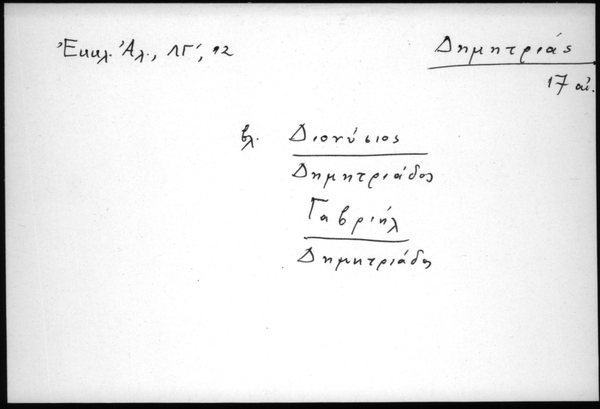 Ἐκκλ. Ἀλ., ΛΓ', 12
Δημητριάς
17 αἰ.
βλ. Διονύσιος
Δημητριάδος
Γαβριήλ
Δημητριάδος